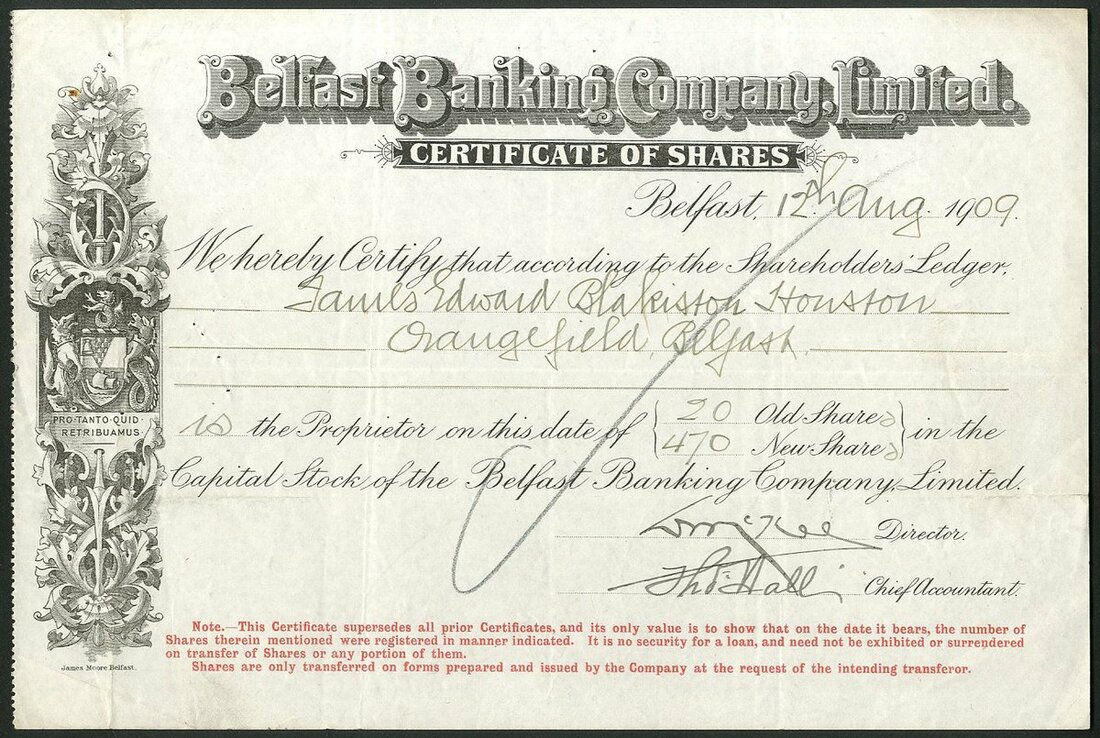 Belfast Banking Company, Limited.
CERTIFICATE OF SHARES
Belfast, 12th Aug. 1909.
We hereby Certify that according to the Shareholders' Ledger,
James Edward Blakiston Houston
Orangefield, Belfast.
is the Proprietor on this date of { 20 Old Shares } in the
470 New Shares
Capital Stock of the Belfast Banking Company, Limited.
McKee Director.
Thos. Hall Chief Accountant.
PRO·TANTO·QUID·
RETRIBUAMUS·
Note.—This Certificate supersedes all prior Certificates, and its only value is to show that on the date it bears, the number of
Shares therein mentioned were registered in manner indicated. It is no security for a loan, and need not be exhibited or surrendered
on transfer of Shares or any portion of them.
Shares are only transferred on forms prepared and issued by the Company at the request of the intending transferor.
James Moore Belfast.